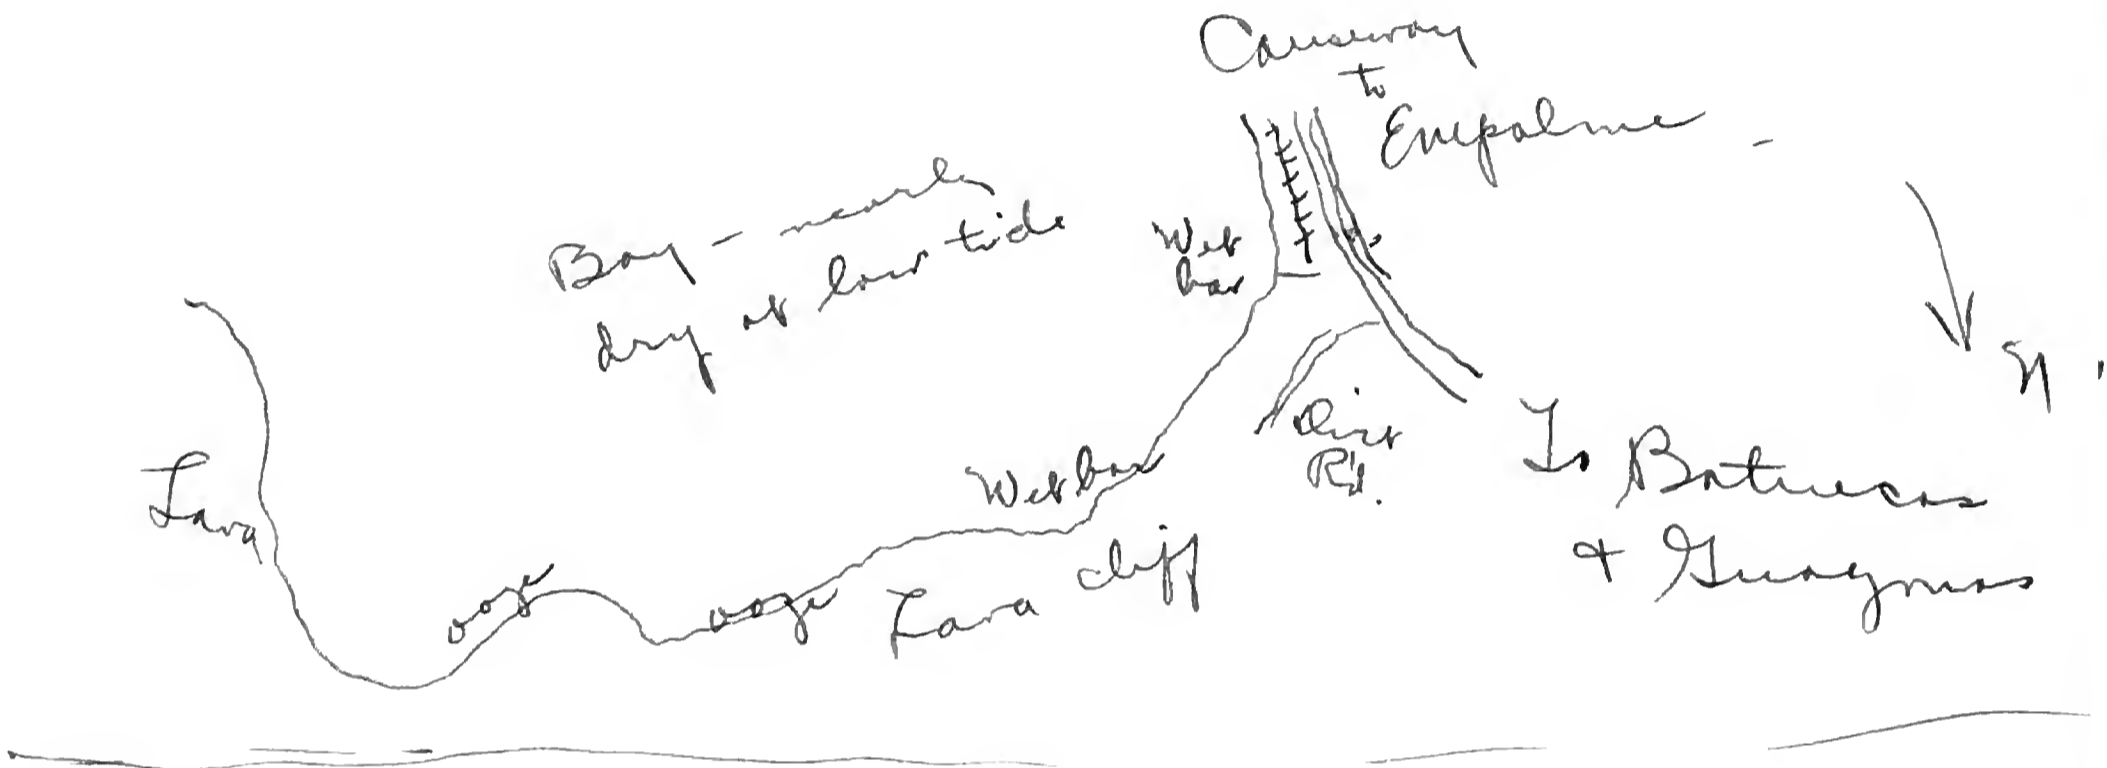 Causeway
to
Empalme -
Bay - nearly
dry at low tide
Wet
bar
N.
Dirt
Rd.
To Batuecas
& Guaymas
Wet bar
Lava
cliff
ooze
ooze
Lava